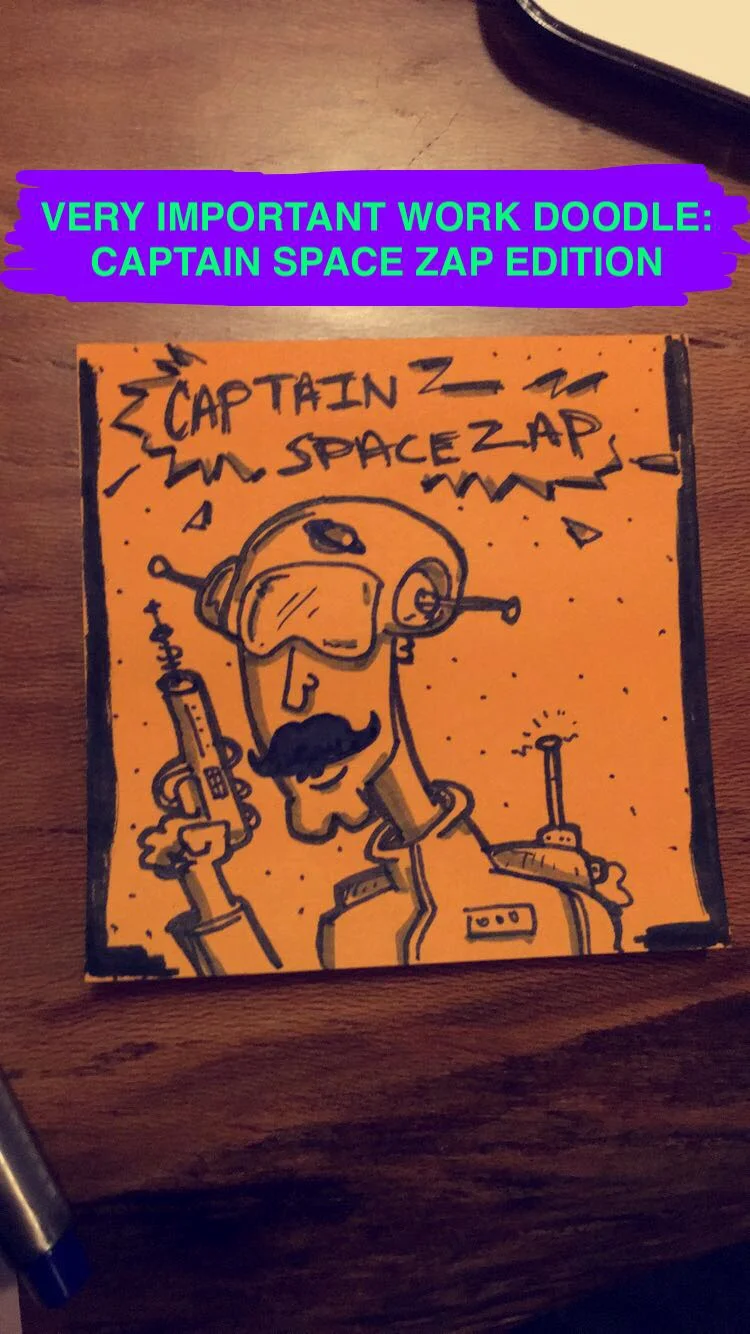 VERY IMPORTANT WORK DOODLE:
CAPTAIN SPACE ZAP EDITION
CAPTAIN
SPACE ZAP